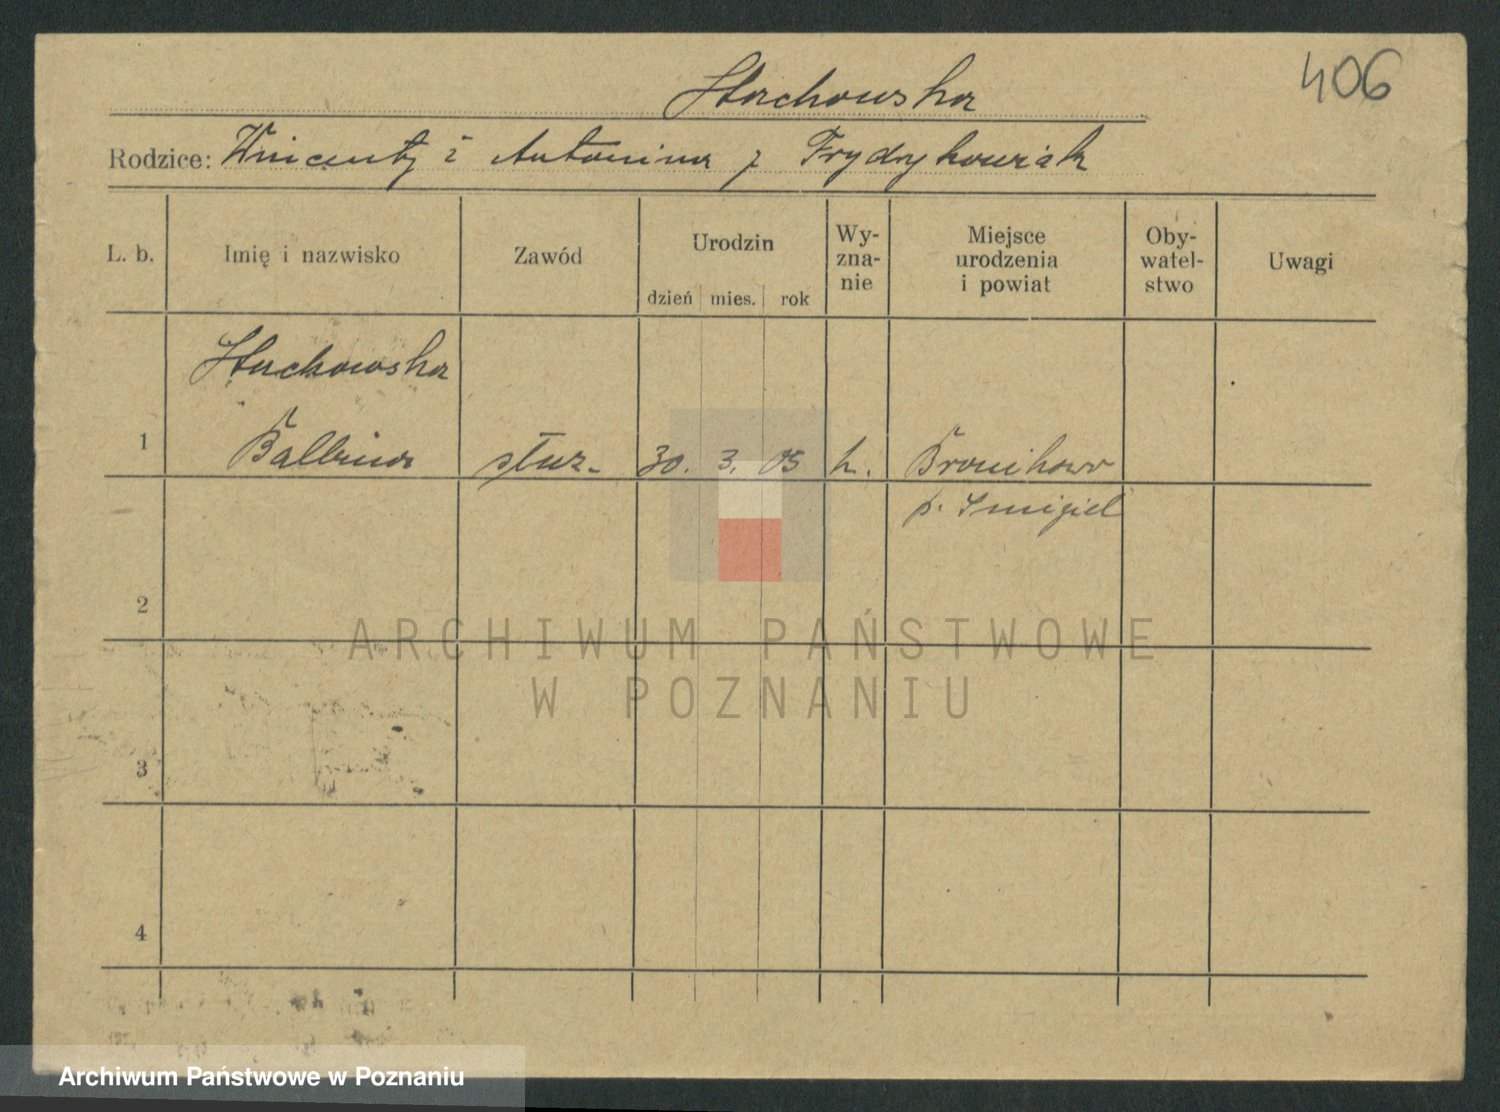 406
Stachowska
Rodzice: Wincenty i Antonina z Frydrykowiak
L. b.
Imię i nazwisko
Zawód
Urodzin
dzień mies. rok
Wy-
zna-
nie
Miejsce
urodzenia
i powiat
Oby-
watel-
stwo
Uwagi
Stachowska
1 Balbina służ. 30. 3. 05 k. Bronikowo
p. Śmigiel
2
3
4
ARCHIWUM PAŃSTWOWE
W POZNANIU
Archiwum Państwowe w Poznaniu